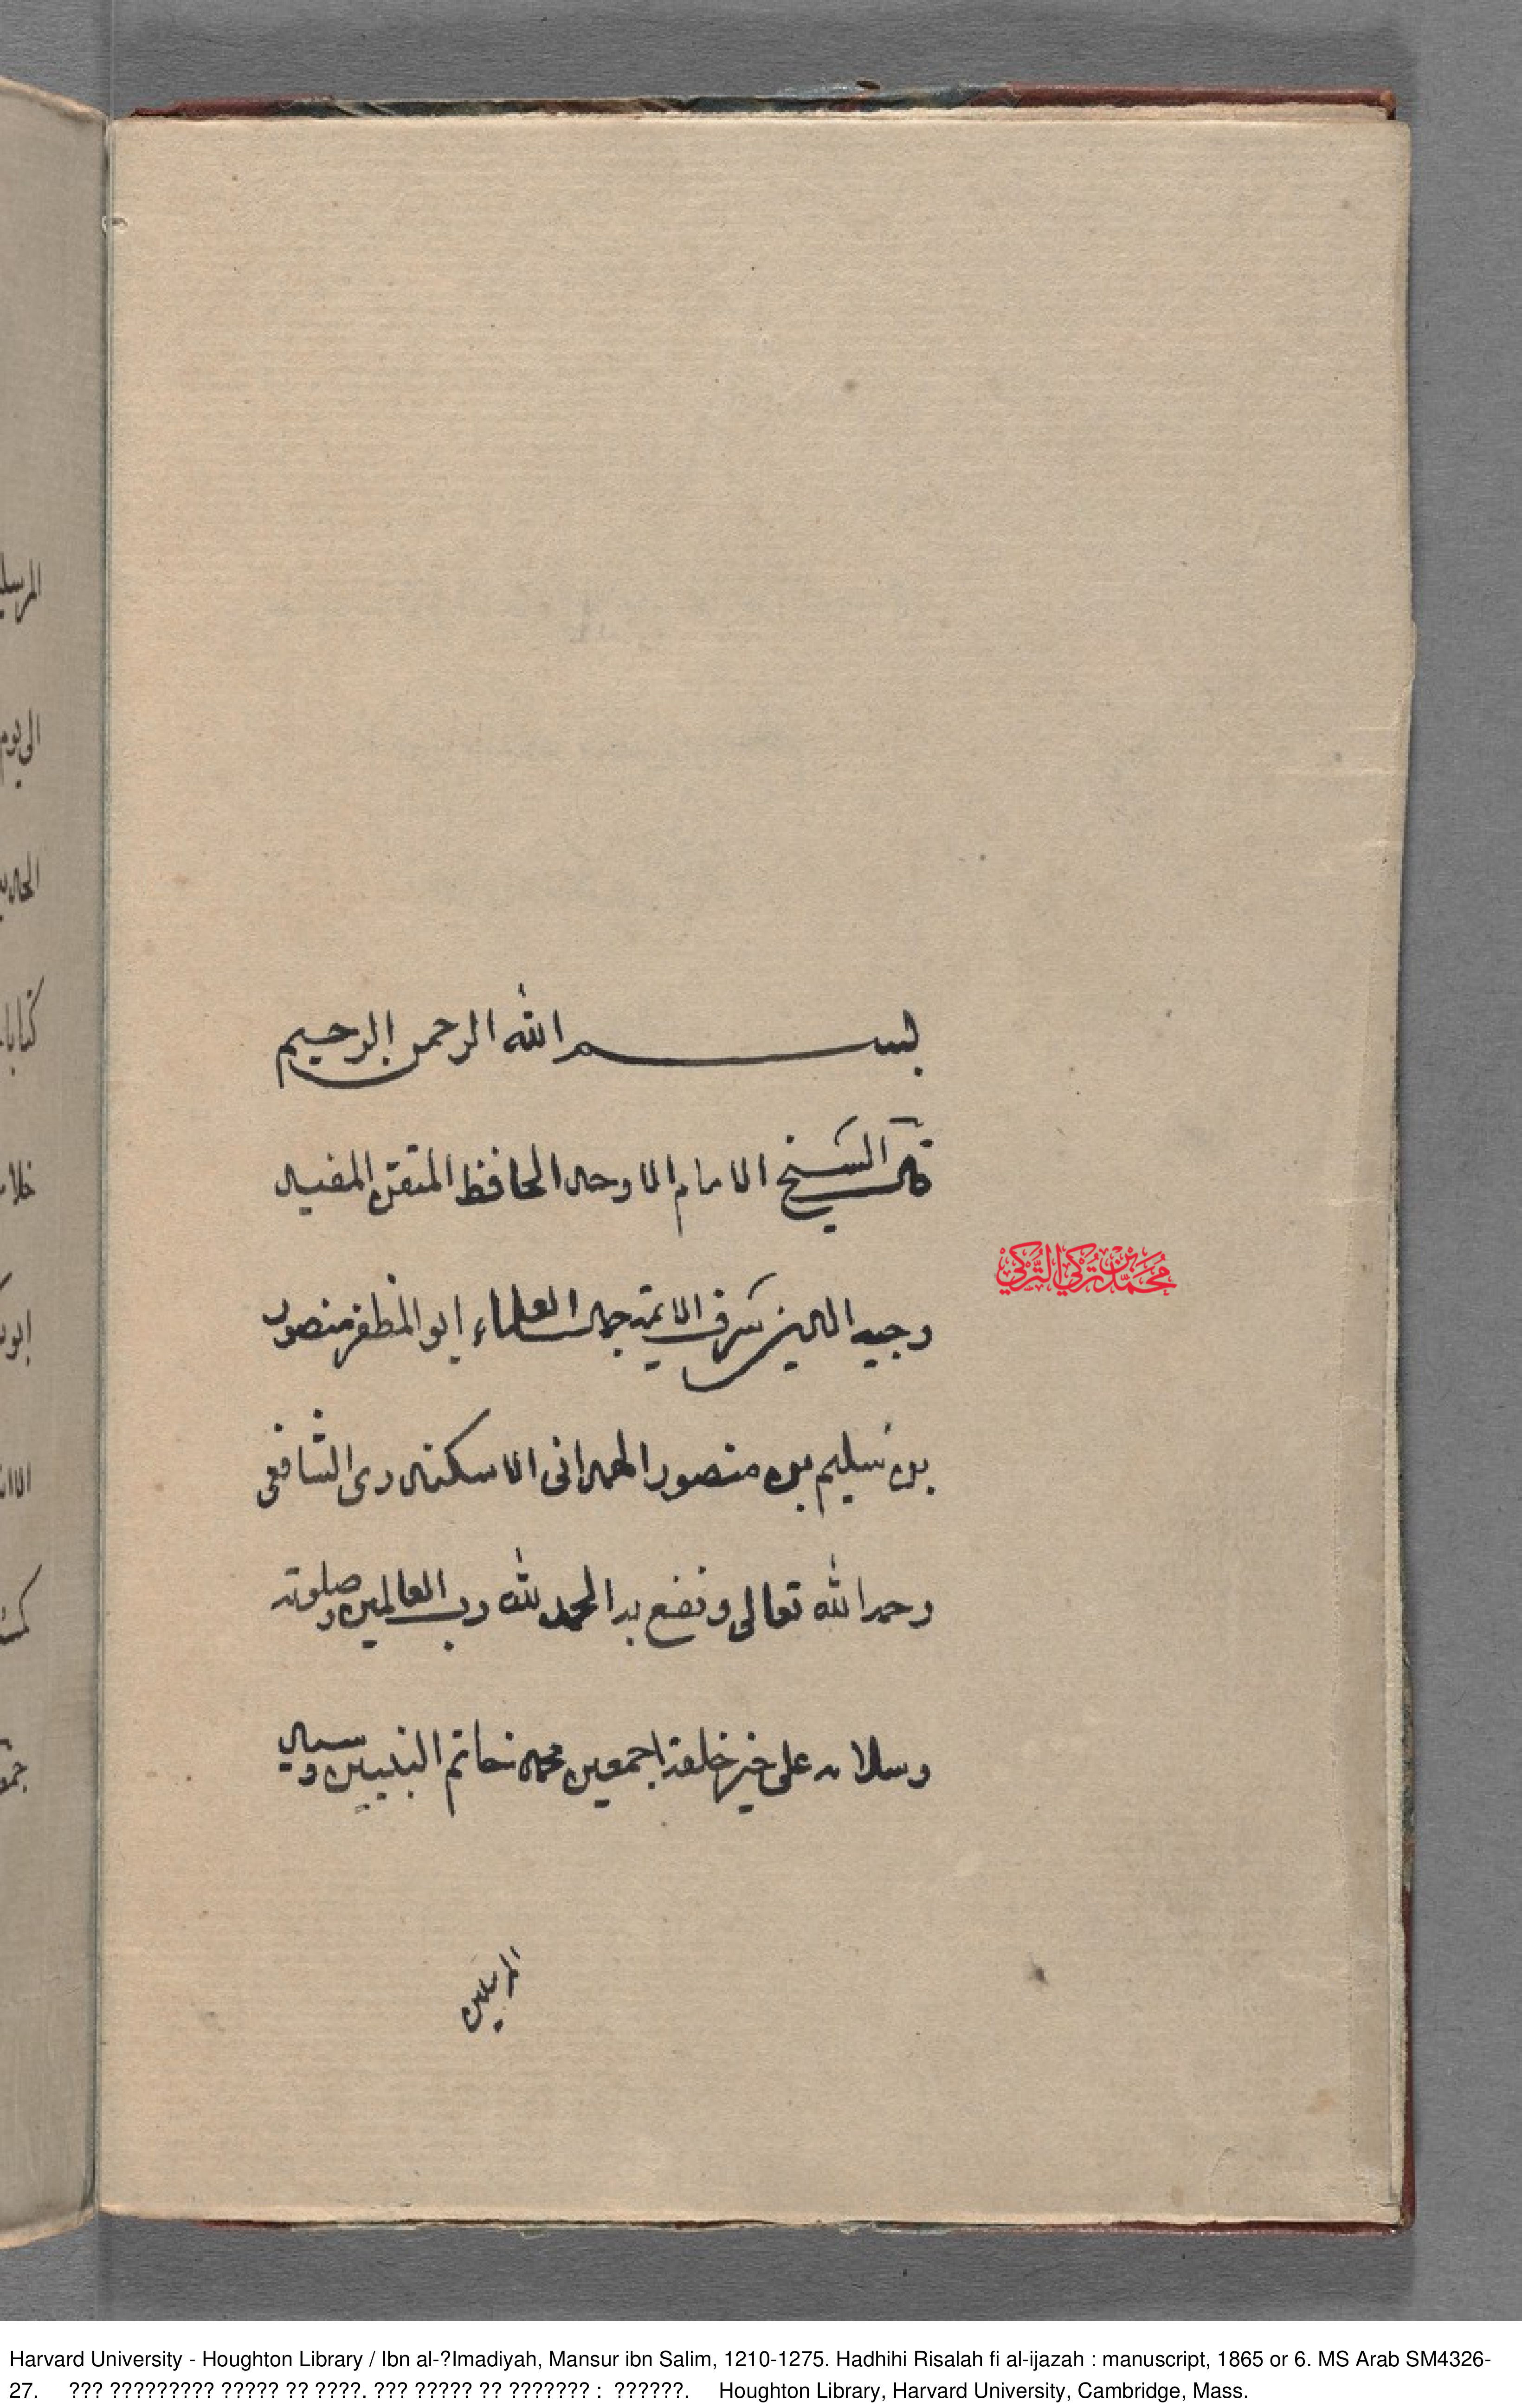 بسم الله الرحمن الرحيم
قال الشيخ الامام الاوحد الحافظ المتقن المفيد
وجيه الدين شرف الائمة جمال العلماء ابو المظفر منصور
بن سليم بن منصور الهمدانى الاسكندرى الشافعى
رحمه الله تعالى ونفع به الحمد لله رب العالمين وصلوته
وسلامه على خير خلقه اجمعين محمد خاتم النبيين وسيد
المرسلين
محمد بن تركي التركي
المرسلين
الى يوم
ابو
Harvard University - Houghton Library / Ibn al-?Imadiyah, Mansur ibn Salim, 1210-1275. Hadhihi Risalah fi al-ijazah : manuscript, 1865 or 6. MS Arab SM4326-
27. ??? ????????? ????? ?? ????. ??? ????? ?? ??????? : ??????. Houghton Library, Harvard University, Cambridge, Mass.